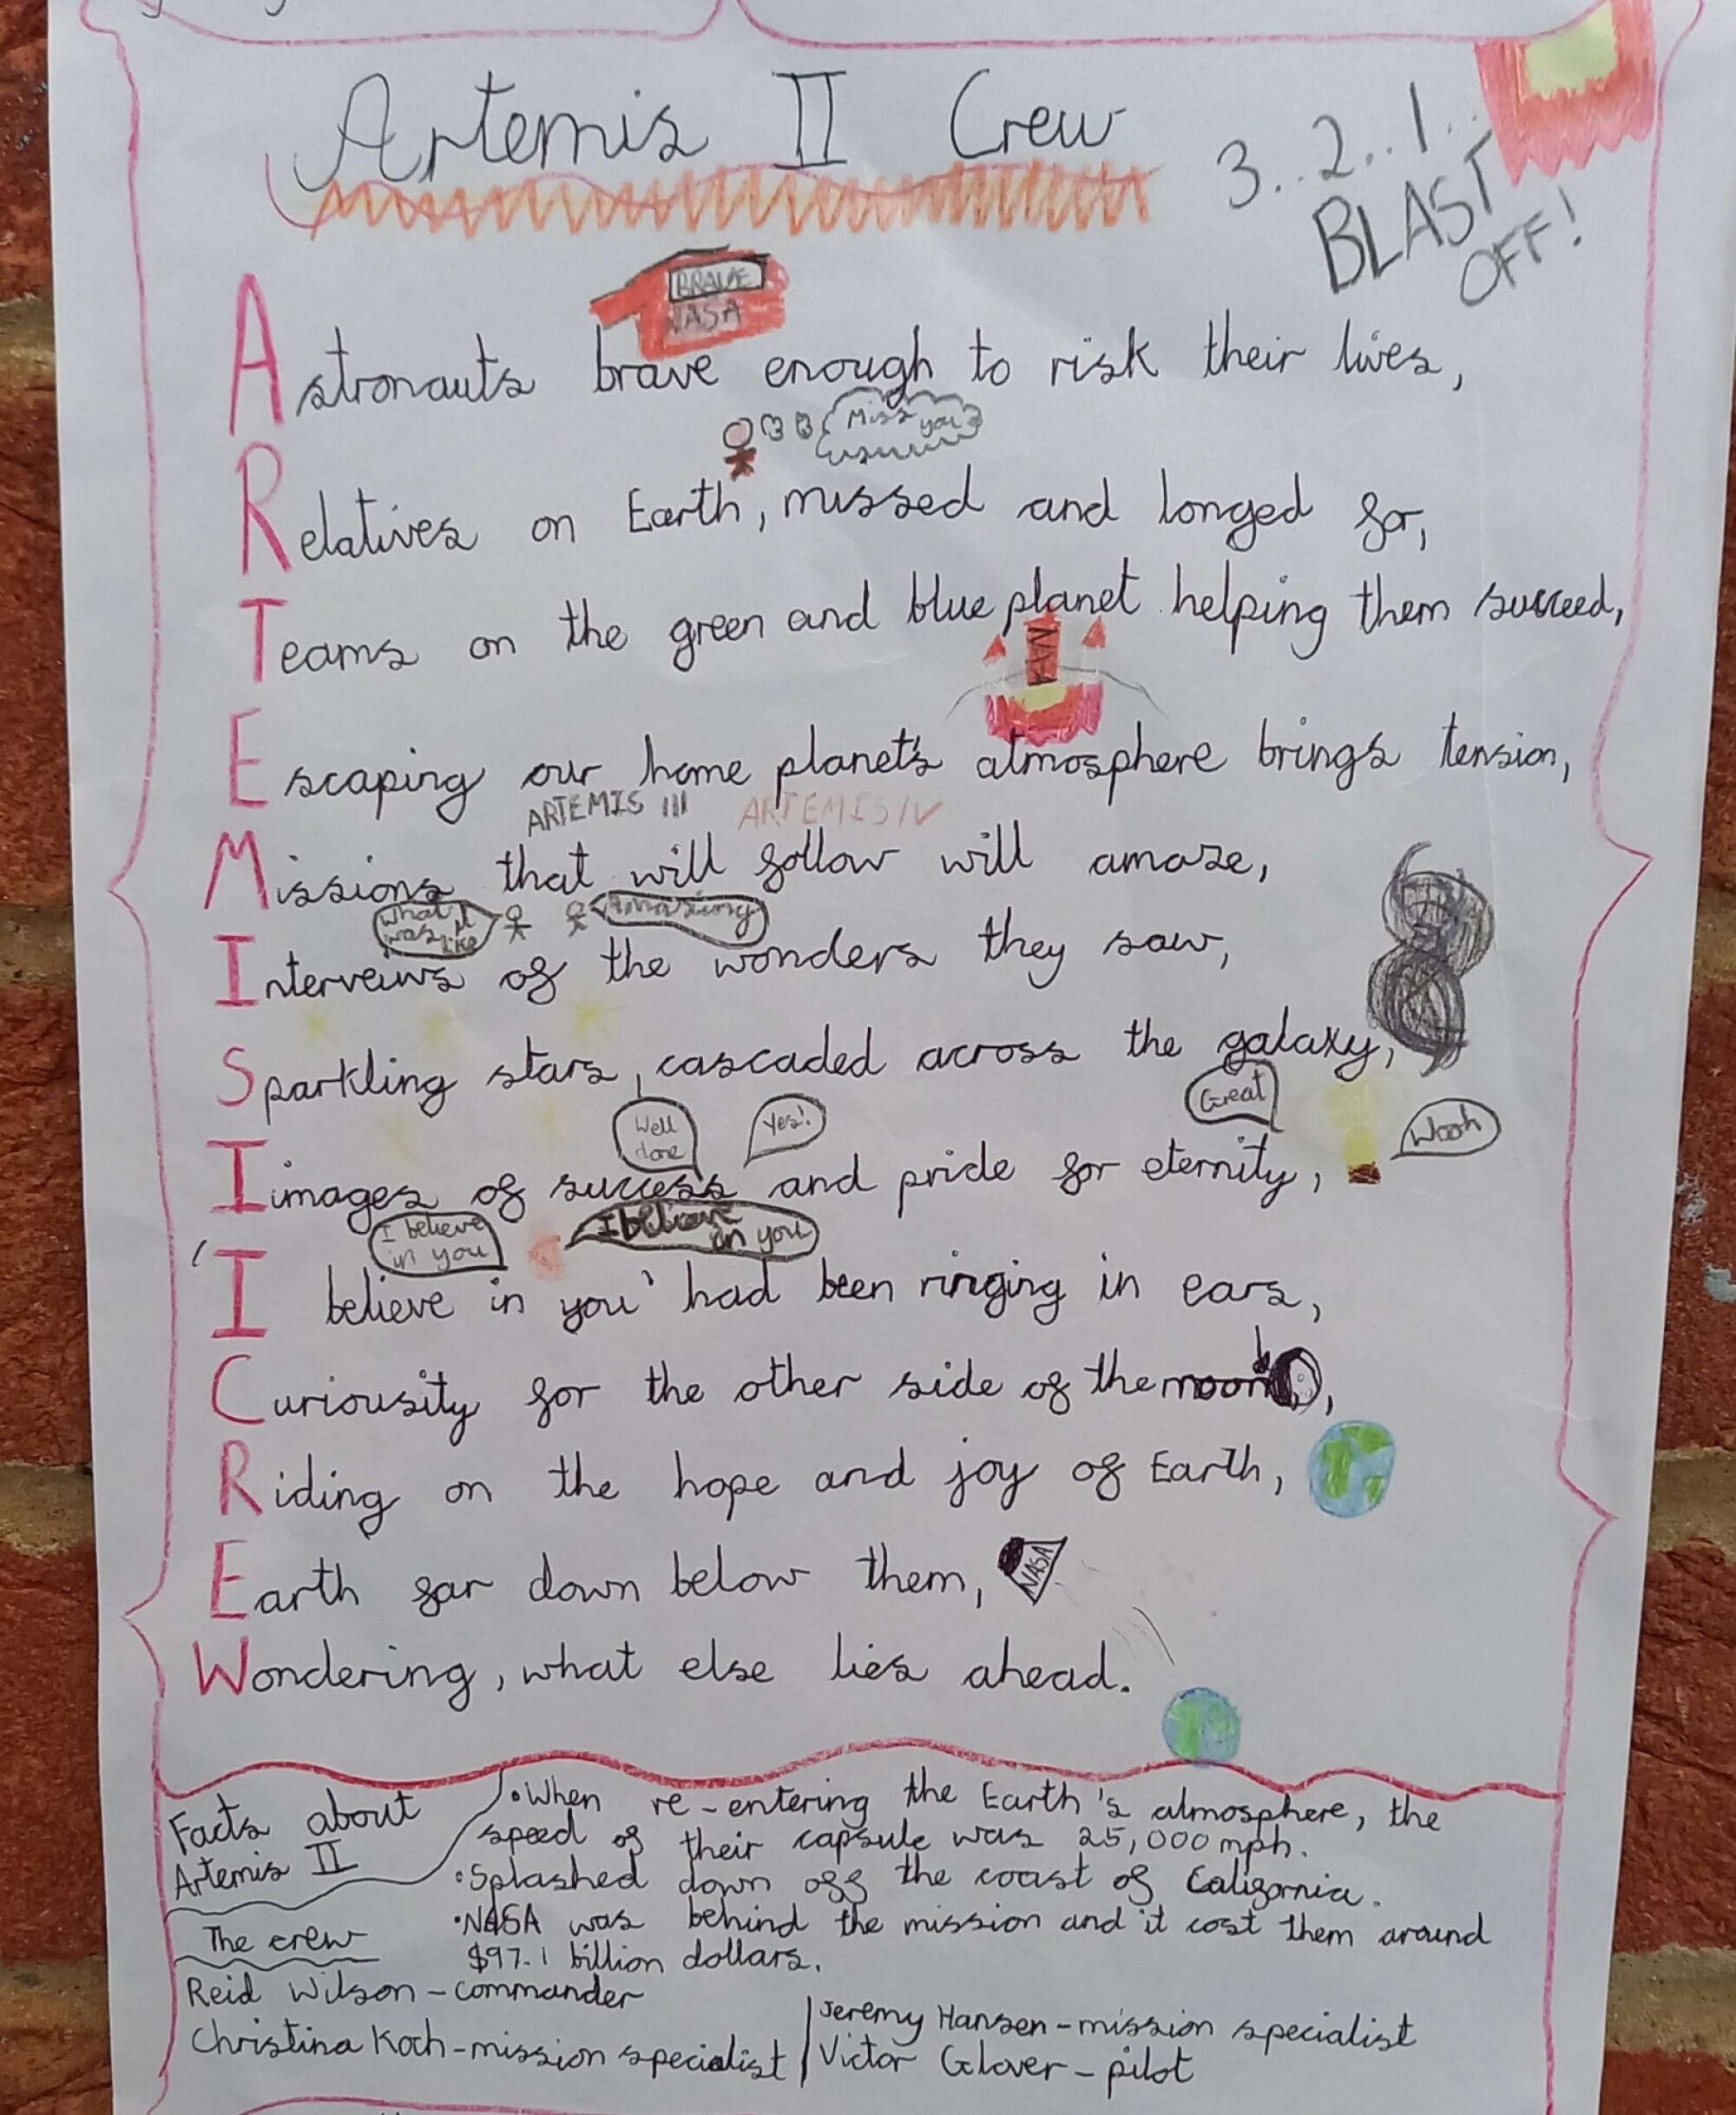 Artemis II Crew
3..2..1..
BLAST
OFF!
BRAVE
NASA
Astronauts brave enough to risk their lives,
Miss
you
Relatives on Earth, missed and longed for,
Teams on the green and blue planet helping them succeed,
Escaping our home planet's atmosphere brings tension,
ARTEMIS III ARTEMIS IV
Missions that will follow will amaze,
What
was it
like
Amazing
Interveiws of the wonders they saw,
Sparkling stars, cascaded across the galaxy,
Well
done
Yes!
Great
Wooh
Iimages of success and pride for eternity,
I believe
in you
I believe
in you
'I believe in you' had been ringing in ears,
Curiousity for the other side of the moon,
Riding on the hope and joy of Earth,
Earth far down below them,
NASA
Wondering, what else lies ahead.
Facts about
Artemis II
•When re-entering the Earth's atmosphere, the
speed of their capsule was 25,000 mph.
•Splashed down off the coast of California.
•NASA was behind the mission and it cost them around
$97.1 billion dollars.
The crew
Reid Wilson – commander
Christina Koch – mission specialist
Jeremy Hansen – mission specialist
Victor Glover – pilot